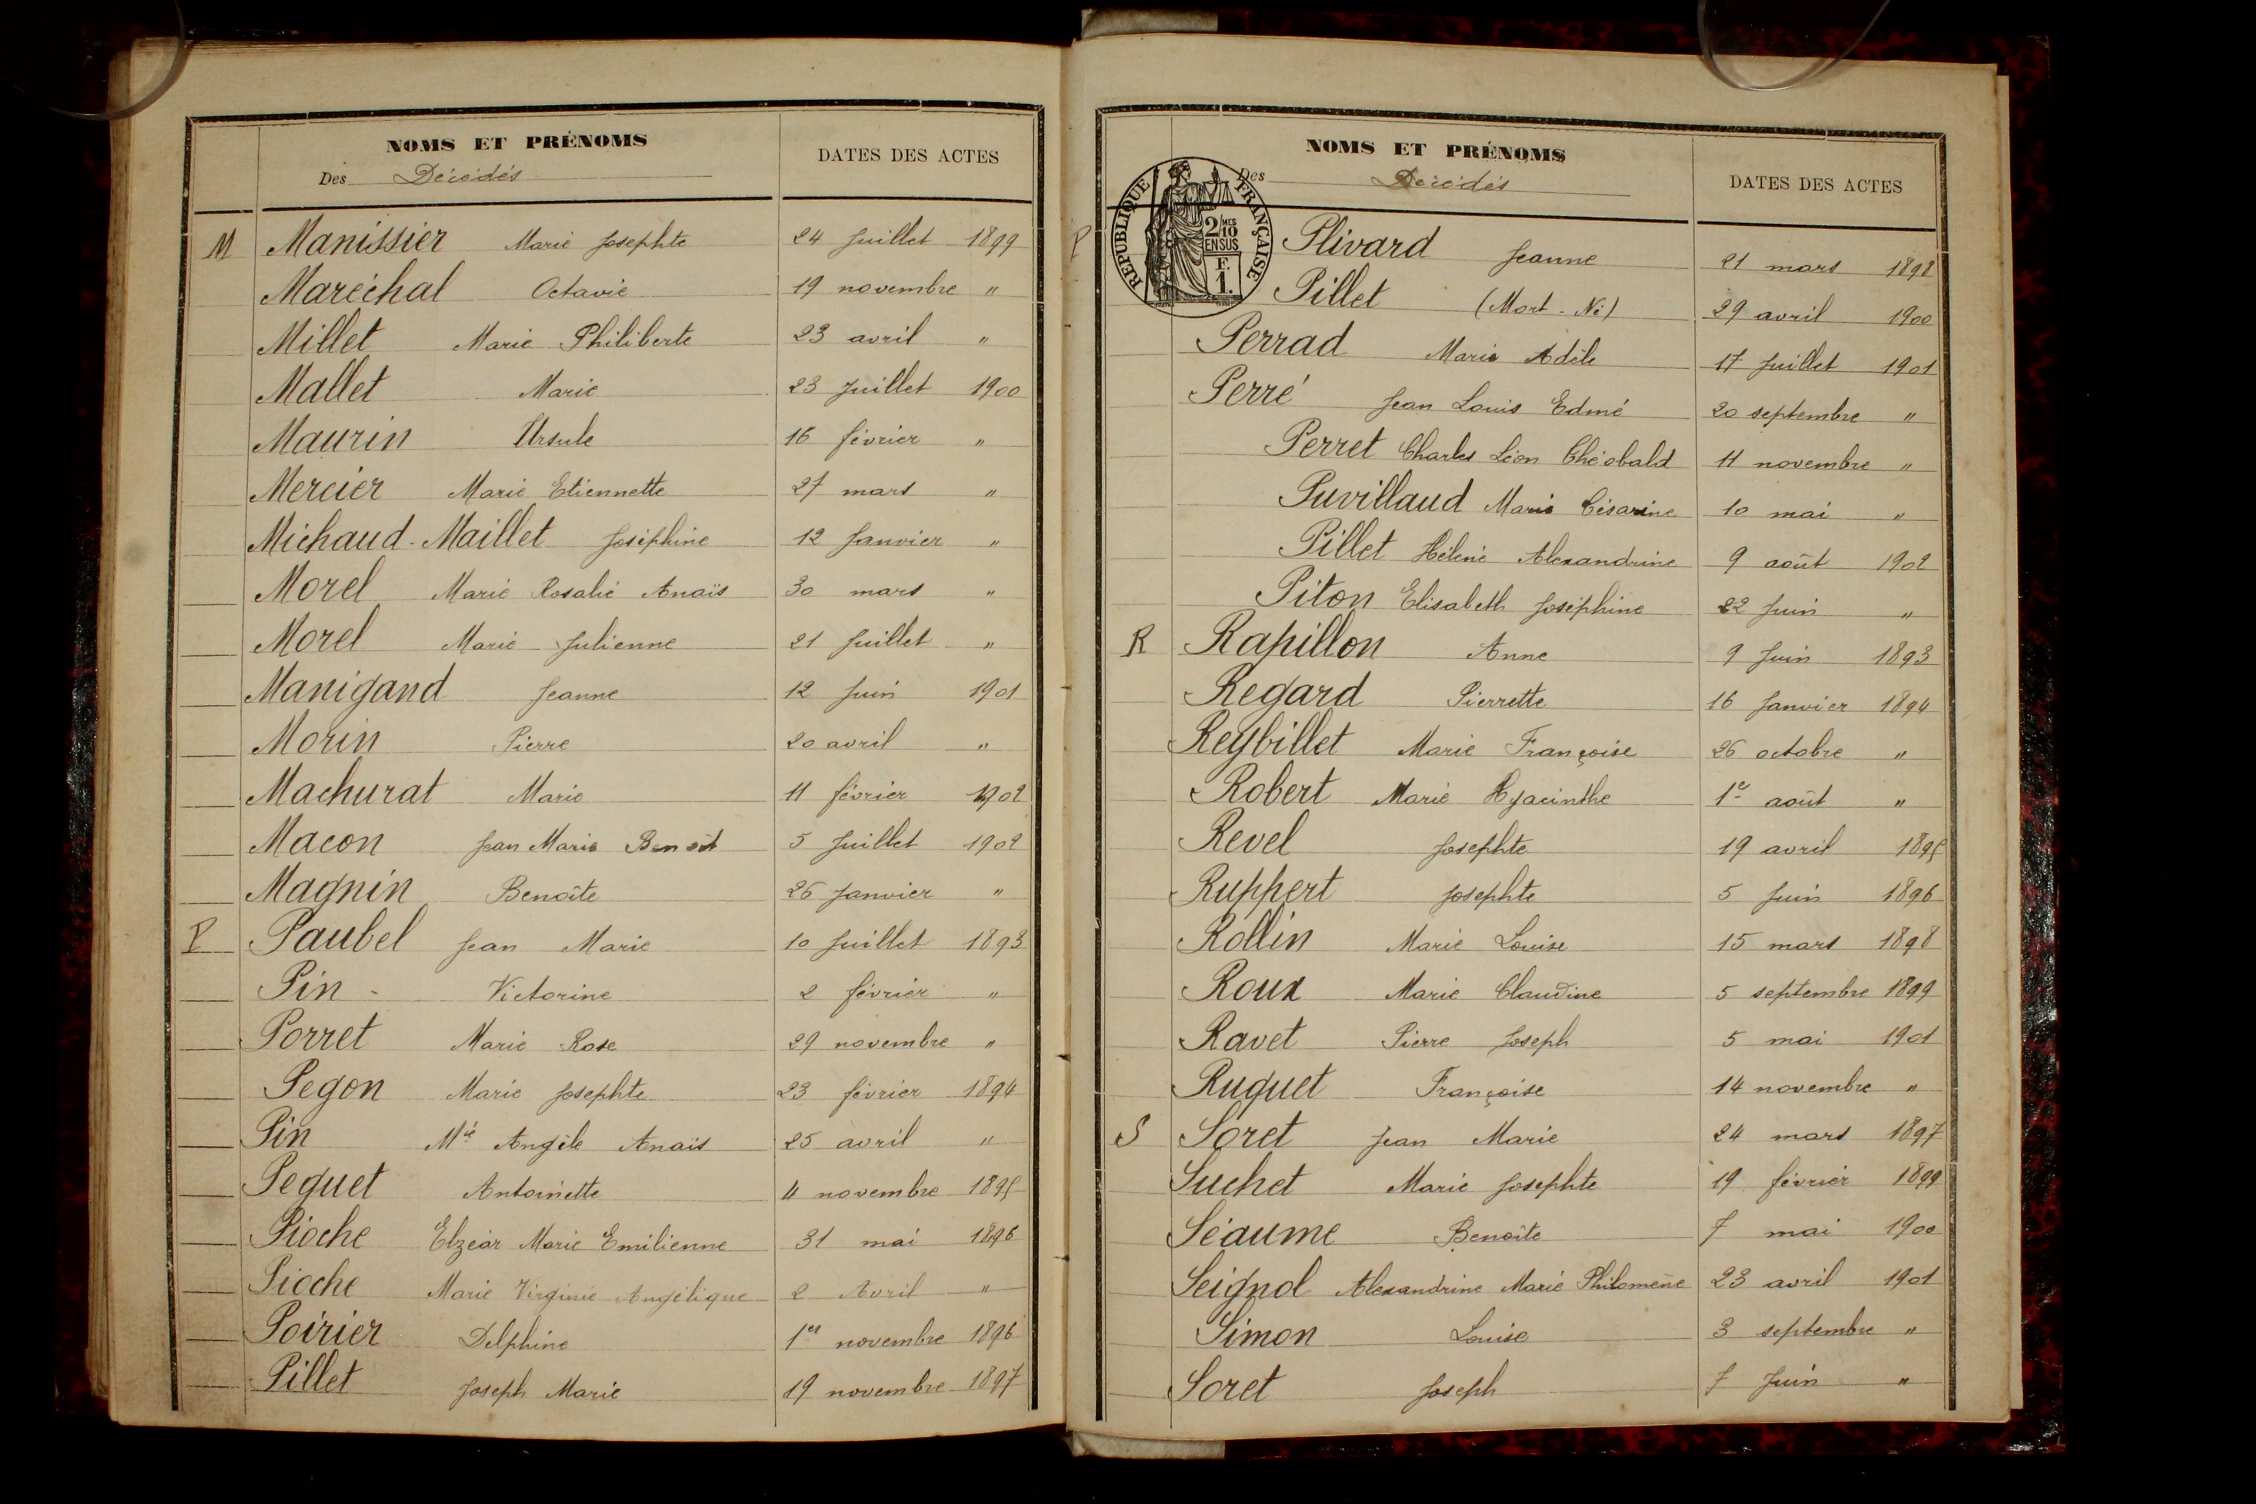 NOMS ET PRÉNOMS
Des Décédés
DATES DES ACTES
M Manissier Marie Josephte 24 Juillet 1899
Maréchal Octavie 19 novembre "
Millet Marie Philiberte 23 avril "
Mallet Marie 23 Juillet 1900
Maurin Ursule 16 février "
Mercier Marie Etiennette 27 mars "
Michaud-Maillet Joséphine 12 Janvier "
Morel Marie Rosalie Anaïs 30 mars "
Morel Marie Julienne 21 Juillet "
Manigand Jeanne 12 Juin 1901
Morin Pierre 20 avril "
Machurat Marie 11 février 1902
Macon Jean Marie Benoit 5 Juillet 1902
Magnin Benoîte 26 Janvier "
P Paubel Jean Marie 10 Juillet 1893
Pin - Victorine 2 février "
Porret Marie Rose 29 novembre "
Pegon Marie Josephte 23 février 1894
Pin Mie Angèle Anaïs 25 avril "
Peguet Antoinette 4 novembre 1895
Pioche Elzéar Marie Emilienne 31 mai 1896
Pioche Marie Virginie Angélique 2 Avril "
Poirier Delphine 1er novembre 1896
Pillet Joseph Marie 19 novembre 1897
NOMS ET PRÉNOMS
Des Décédés
DATES DES ACTES
RÉPUBLIQUE FRANÇAISE
2/10 MES
EN SUS
F.
1.
P Plivard Jeanne 21 mars 1898
Pillet (Mort-Né) 29 avril 1900
Perrad Marie Adèle 17 Juillet 1901
Perré Jean Louis Edmé 20 septembre "
Perret Charles Léon Théobald 11 novembre "
Puvillaud Marie Césarine 10 mai "
Pillet Hélène Alexandrine 9 août 1902
Piton Elisabeth Joséphine 22 Juin "
R Rapillon Anne 9 Juin 1893
Regard Pierrette 16 Janvier 1894
Reybillet Marie Françoise 26 octobre "
Robert Marie Hyacinthe 1er août "
Revel Josephte 19 avril 1895
Ruppert Josephte 5 Juin 1896
Rollin Marie Louise 15 mars 1898
Roux Marie Claudine 5 septembre 1899
Ravet Pierre Joseph 5 mai 1901
Ruguet Françoise 14 novembre "
S Soret Jean Marie 24 mars 1897
Suchet Marie Josephte 19 février 1899
Séaume Benoîte 7 mai 1900
Seignol Alexandrine Marie Philomène 23 avril 1901
Simon Louise 3 septembre "
Soret Joseph 7 Juin "